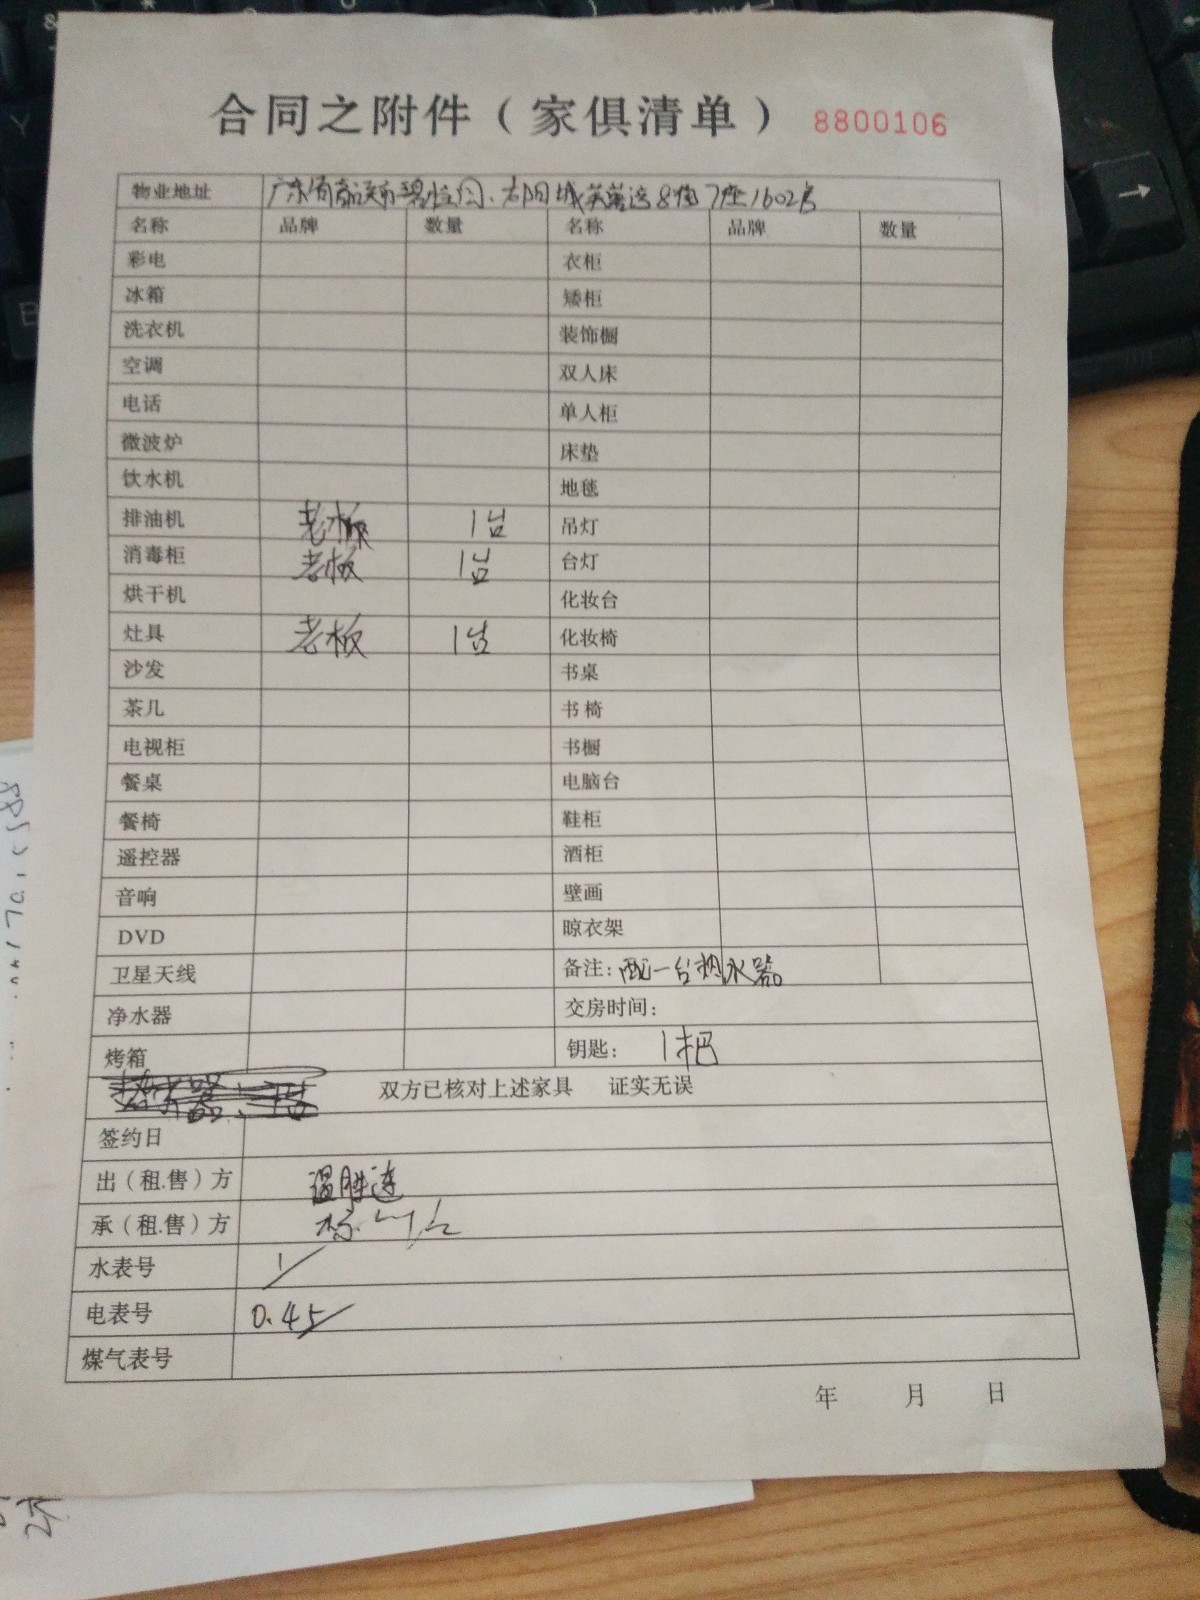 合同之附件（家俱清单） 8800106
物业地址 广东省清远市碧桂园·太阳城芙蓉湾8街7座1602房
名称 品牌 数量 名称 品牌 数量
彩电 衣柜
冰箱 矮柜
洗衣机 装饰橱
空调 双人床
电话 单人柜
微波炉 床垫
饮水机 地毯
排油机 老板 1台 吊灯
消毒柜 老板 1台 台灯
烘干机 化妆台
灶具 老板 1台 化妆椅
沙发 书桌
茶几 书椅
电视柜 书橱
餐桌 电脑台
餐椅 鞋柜
遥控器 酒柜
音响 壁画
DVD 晾衣架
卫星天线 备注：配一台热水器
净水器 交房时间：
烤箱 钥匙： 1把
双方已核对上述家具 证实无误
签约日
出（租.售）方 温胜连
承（租.售）方
水表号 1
电表号 0.45
煤气表号
年 月 日